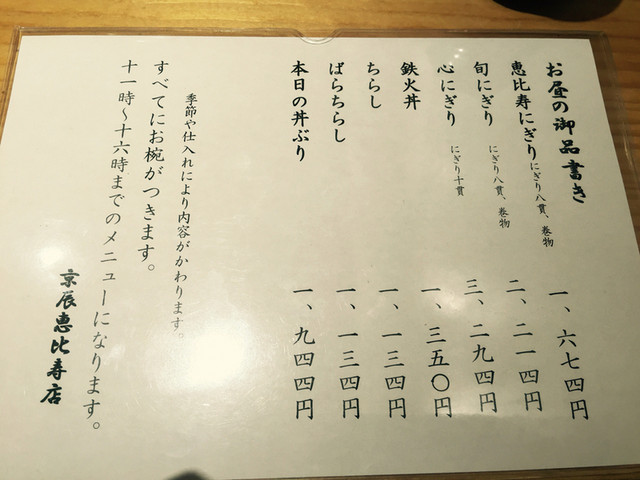 お昼の御品書き
恵比寿にぎり にぎり八貫、巻物 一、六七四円
旬にぎり にぎり八貫、巻物 二、二一四円
心にぎり にぎり十貫 三、二九四円
鉄火丼 一、三五〇円
ちらし 一、一三四円
ばらちらし 一、一三四円
本日の丼ぶり 一、九四四円
季節や仕入れにより内容がかわります。
すべてにお椀がつきます。
十一時〜十六時までのメニューになります。
京辰恵比寿店